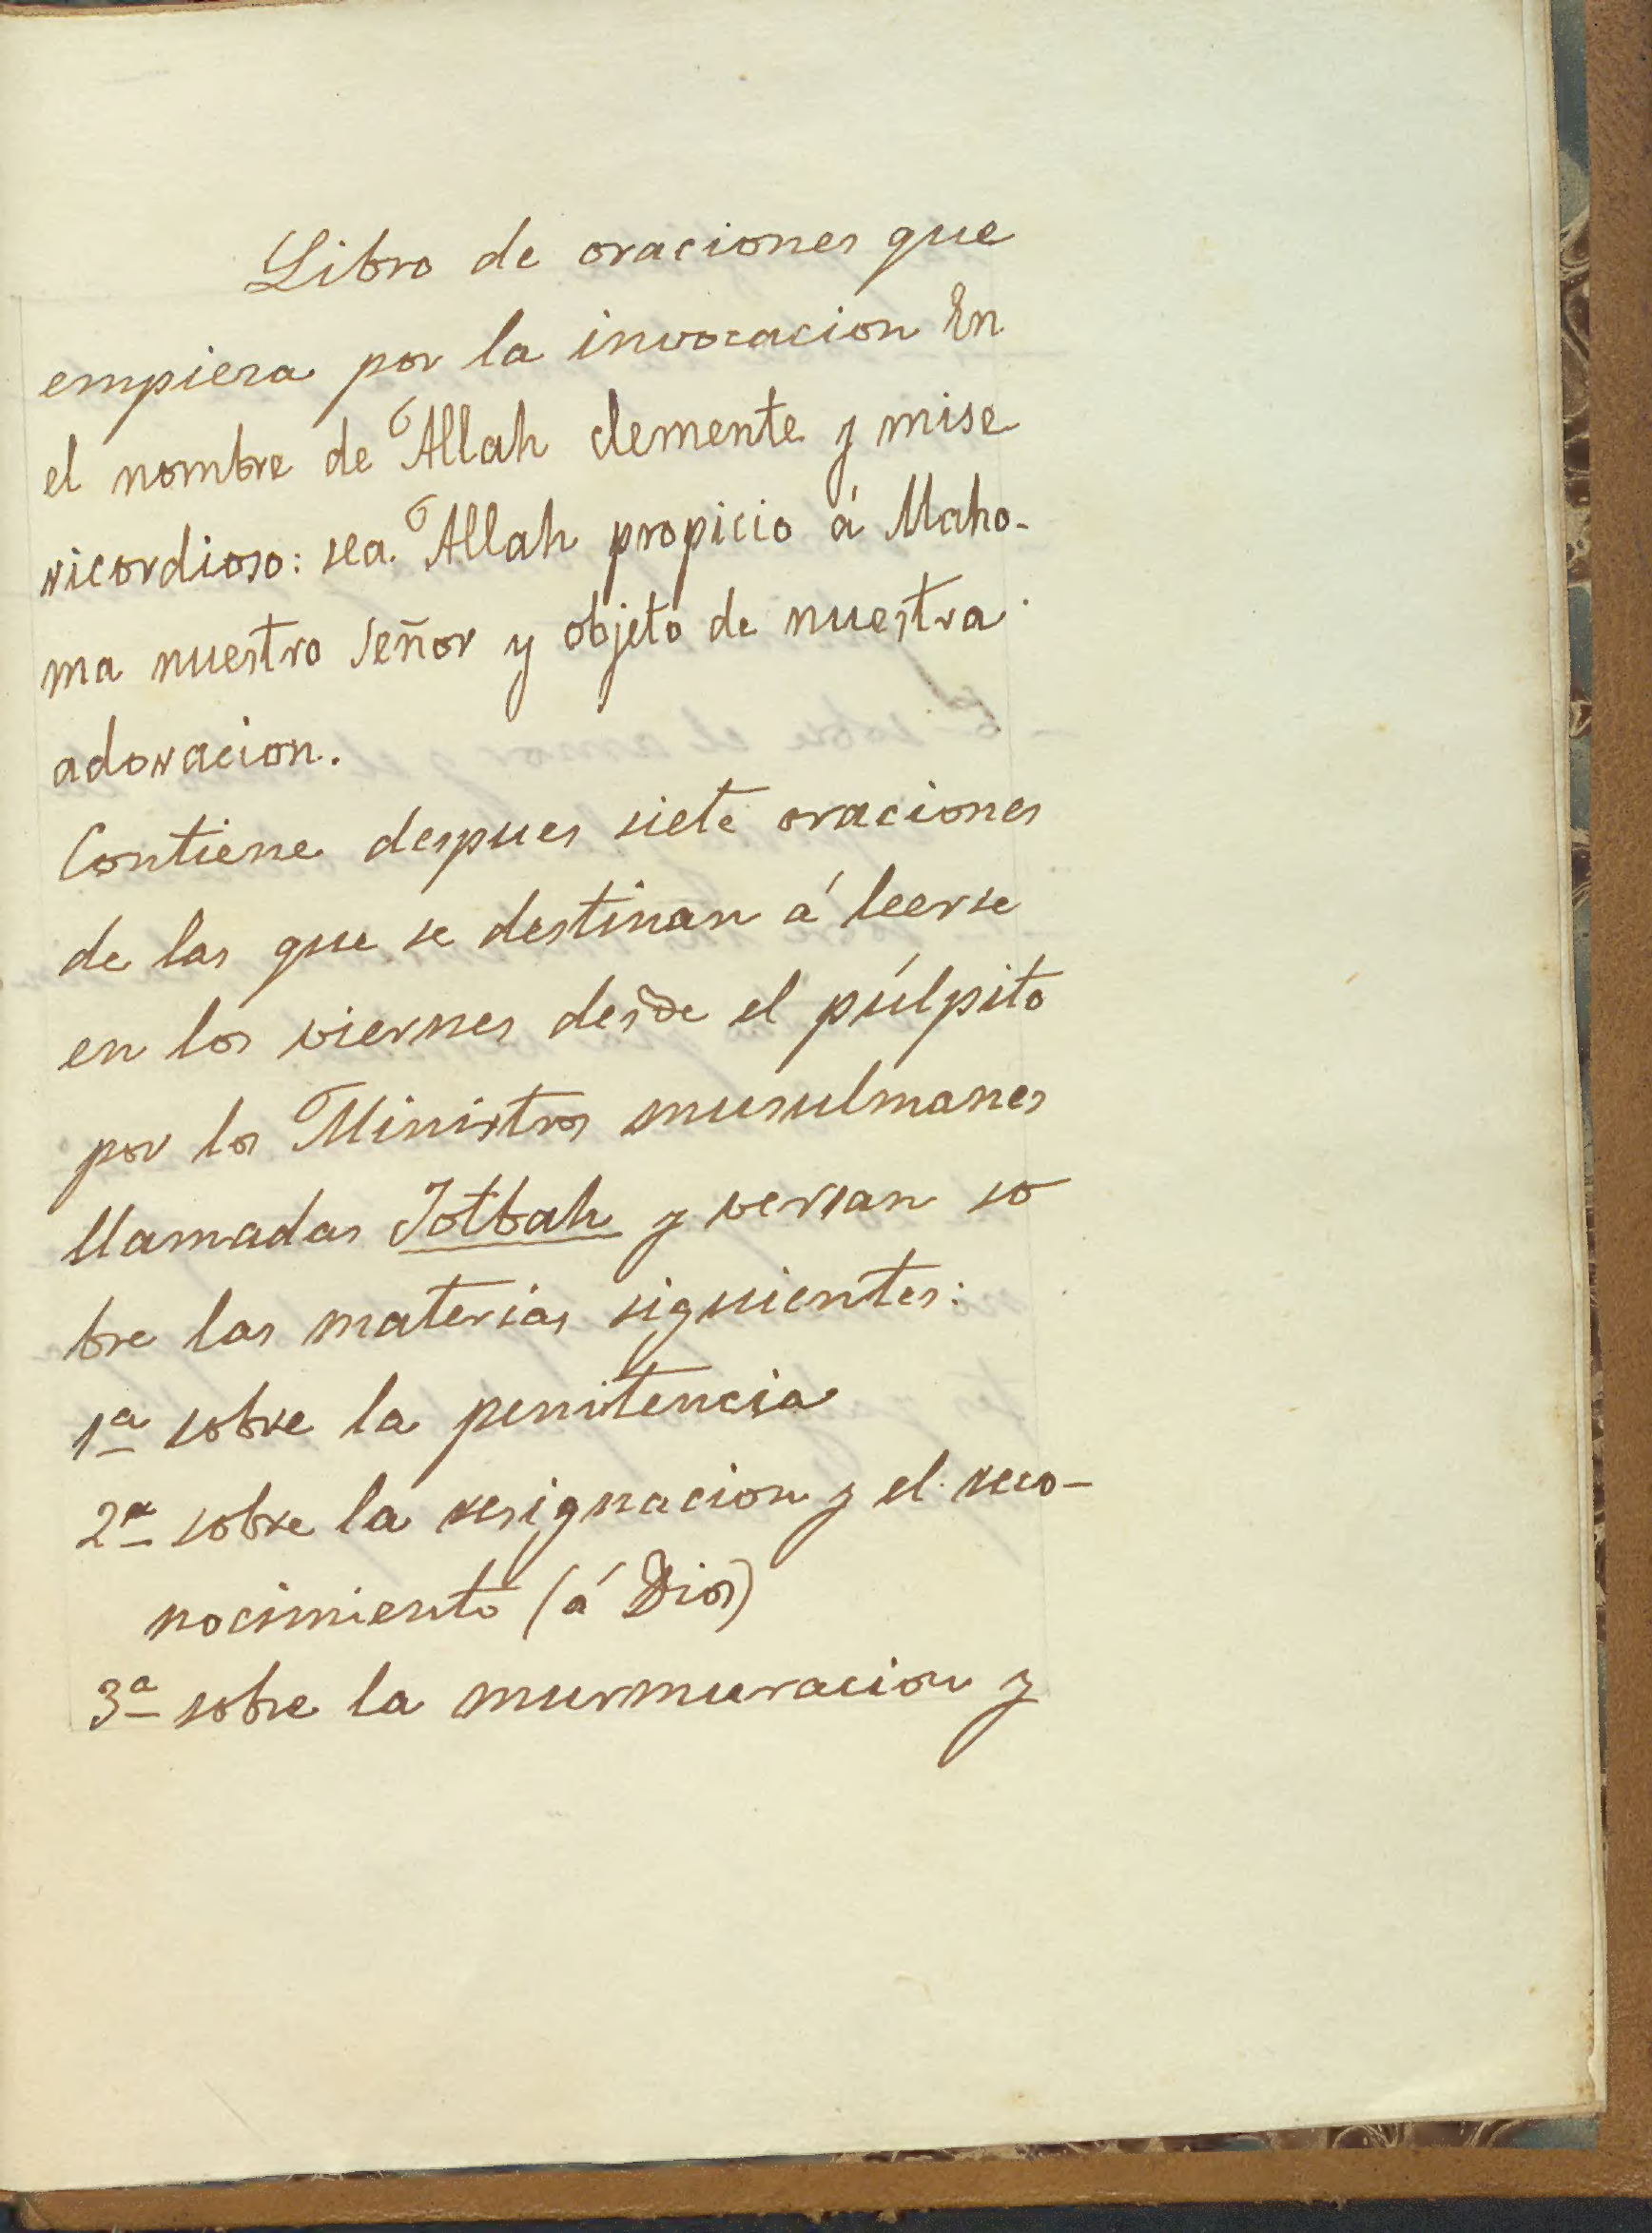 Libro de oraciones que
empieza por la invocacion En
el nombre de Allah clemente y mise
ricordioso: sea Allah propicio á Maho-
ma nuestro Señor y objeto de nuestra
adoracion.
Contiene despues siete oraciones
de las que se destinan á leerse
en los viernes desde el púlpito
por los Ministros musulmanes
llamadas Jotbah y versan so
bre las materias siguientes:
1ª sobre la penitencia
2ª sobre la resignacion y el reco-
nocimiento (á Dios)
3ª sobre la murmuracion y